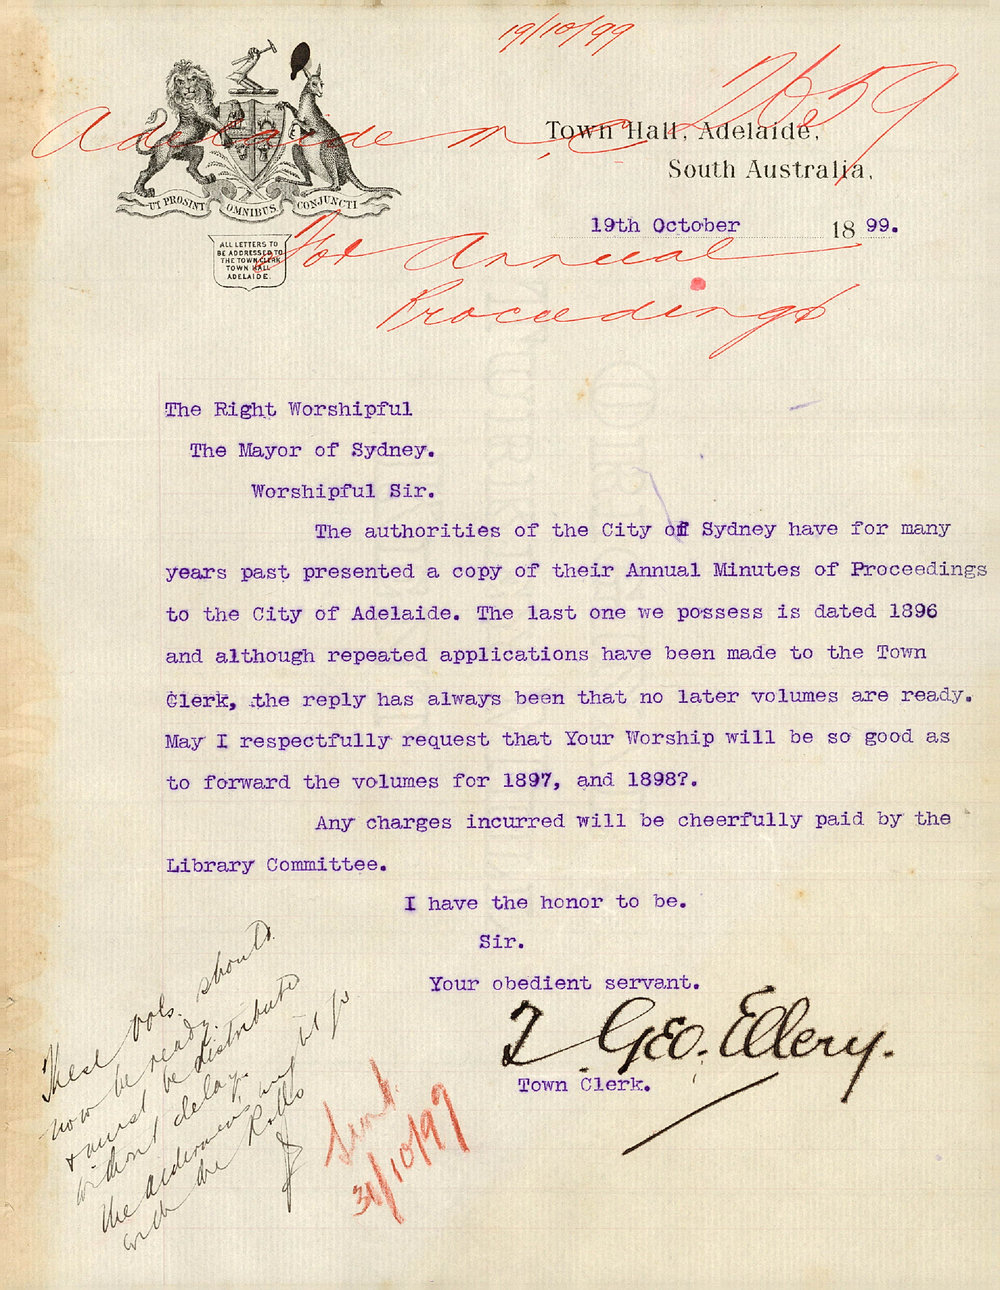 19/10/99
2659
Adelaide M. C.
Town Hall, Adelaide,
South Australia,
UT PROSINT OMNIBUS CONJUNCTI
19th October 1899.
ALL LETTERS TO
BE ADDRESSED TO
THE TOWN CLERK
TOWN HALL
ADELAIDE.
For Annual
Proceedings
The Right Worshipful
The Mayor of Sydney.
Worshipful Sir.
The authorities of the City of Sydney have for many
years past presented a copy of their Annual Minutes of Proceedings
to the City of Adelaide. The last one we possess is dated 1896
and although repeated applications have been made to the Town
Clerk, the reply has always been that no later volumes are ready.
May I respectfully request that Your Worship will be so good as
to forward the volumes for 1897, and 1898?.
Any charges incurred will be cheerfully paid by the
Library Committee.
I have the honor to be.
Sir.
Your obedient servant.
T. Geo. Ellery.
Town Clerk.
These vols. should
now be ready
& must be distributed
without delay.
the aldermen's may go
with the Rolls
Sent
31/10/99